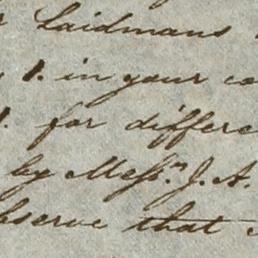 Laidmans
1. in your co
1. for differe
by Mess.rs J. A.
bserve that